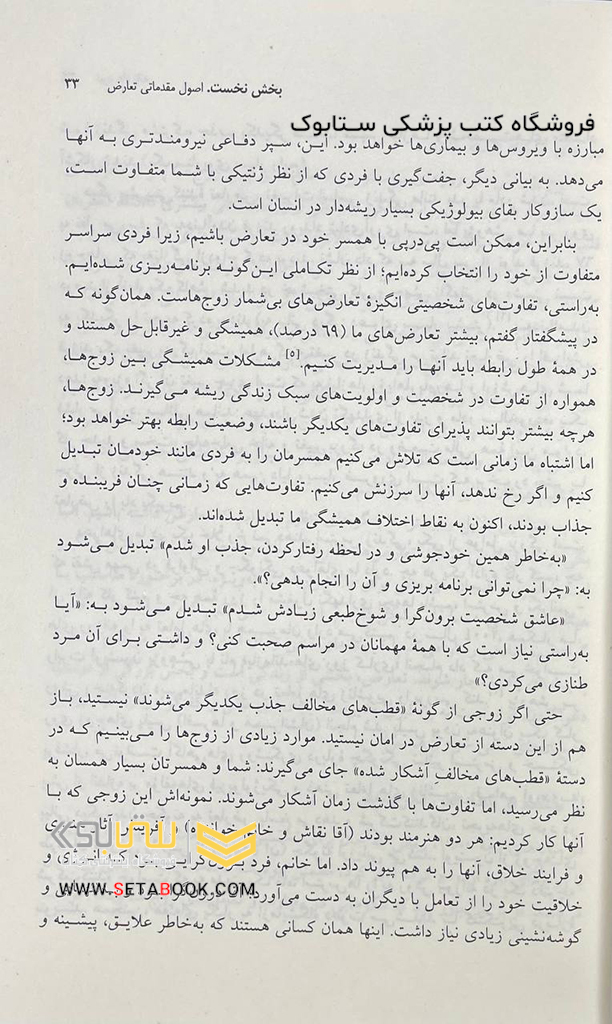 بخش نخست. اصول مقدماتی تعارض ۳۳
فروشگاه کتب پزشکی ستابوک
مبارزه با ویروس‌ها و بیماری‌ها خواهد بود. این، سپر دفاعی نیرومندتری به آنها
می‌دهد. به بیانی دیگر، جفت‌گیری با فردی که از نظر ژنتیکی با شما متفاوت است،
یک سازوکار بقای بیولوژیکی بسیار ریشه‌دار در انسان است.
بنابراین، ممکن است پی‌درپی با همسر خود در تعارض باشیم، زیرا فردی سراسر
متفاوت از خود را انتخاب کرده‌ایم؛ از نظر تکاملی این‌گونه برنامه‌ریزی شده‌ایم.
به‌راستی، تفاوت‌های شخصیتی انگیزهٔ تعارض‌های بی‌شمار زوج‌هاست. همان‌گونه که
در پیشگفتار گفتم، بیشتر تعارض‌های ما (۶۹ درصد)، همیشگی و غیرقابل‌حل هستند و
در همهٔ طول رابطه باید آنها را مدیریت کنیم.[۵] مشکلات همیشگی بین زوج‌ها،
همواره از تفاوت در شخصیت و اولویت‌های سبک زندگی ریشه می‌گیرند. زوج‌ها،
هرچه بیشتر بتوانند پذیرای تفاوت‌های یکدیگر باشند، وضعیت رابطه بهتر خواهد بود؛
اما اشتباه ما زمانی است که تلاش می‌کنیم همسرمان را به فردی مانند خودمان تبدیل
کنیم و اگر رخ ندهد، آنها را سرزنش می‌کنیم. تفاوت‌هایی که زمانی چنان فریبنده و
جذاب بودند، اکنون به نقاط اختلاف همیشگی ما تبدیل شده‌اند.
«به‌خاطر همین خودجوشی و در لحظه رفتارکردن، جذب او شدم» تبدیل می‌شود
به: «چرا نمی‌توانی برنامه بریزی و آن را انجام بدهی؟».
«عاشق شخصیت برون‌گرا و شوخ‌طبعی زیادش شدم» تبدیل می‌شود به: «آیا
به‌راستی نیاز است که با همهٔ مهمانان در مراسم صحبت کنی؟ و داشتی برای آن مرد
طنازی می‌کردی؟»
حتی اگر زوجی از گونهٔ «قطب‌های مخالف جذب یکدیگر می‌شوند» نیستید، باز
هم از این دسته از تعارض در امان نیستید. موارد زیادی از زوج‌ها را می‌بینیم که در
دستهٔ «قطب‌های مخالفِ آشکار شده» جای می‌گیرند: شما و همسرتان بسیار همسان به
نظر می‌رسید، اما تفاوت‌ها با گذشت زمان آشکار می‌شوند. نمونه‌اش این زوجی که با
آنها کار کردیم: هر دو هنرمند بودند (آقا نقاش و خانم خواننده) و آفرینش
ستابوک
و فرایند خلاق، آنها را به هم پیوند داد. اما خانم، فرد
WWW.SETABOOK.COM
خلاقیت خود را از تعامل با دیگران به دست می‌آورد. و
گوشه‌نشینی زیادی نیاز داشت. اینها همان کسانی هستند که به‌خاطر علایق، پیشینه و